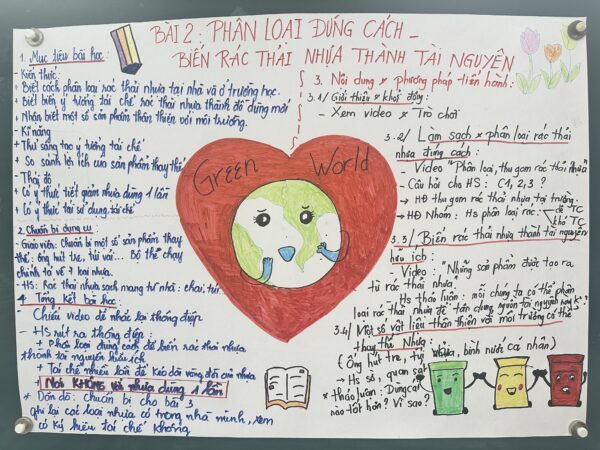 BÀI 2: PHÂN LOẠI ĐÚNG CÁCH -
BIẾN RÁC THẢI NHỰA THÀNH TÀI NGUYÊN
1. Mục tiêu bài học:
- Kiến thức:
+ Biết cách phân loại rác thải nhựa tại nhà và ở trường học.
+ Biết biến ý tưởng tái chế rác thải nhựa thành đồ dùng mới
+ Nhận biết một số sản phẩm thân thiện với môi trường.
- Kĩ năng
+ Thử sáng tạo ý tưởng tái chế
+ So sánh lợi ích của sản phẩm thay thế
- Thái độ
+ Có ý thức tiết giảm nhựa dùng 1 lần
+ Có ý thức tái sử dụng, tái chế
2. Chuẩn bị dụng cụ
- Giáo viên: Chuẩn bị một số sản phẩm thay
thế: ống hút tre, túi vải... Bộ thẻ chạy
chính tả về 7 loại nhựa.
- HS: Rác thải nhựa sạch mang từ nhà: chai, túi
4. Tổng kết bài học:
Chiếu video để nhắc lại thông điệp
- HS rút ra thông điệp:
+ Phân loại đúng cách để biến rác thải nhựa
thành tài nguyên hữu ích
+ Tái chế nhiều lần để kéo dài vòng đời của nhựa
+ Nói KHÔNG với nhựa dùng 1 lần
* Dặn dò: Chuẩn bị cho bài 3
ghi lại các loại nhựa có trong nhà mình, xem
có ký hiệu tái chế không
Green World
3. Nội dung & phương pháp tiến hành:
3.1/ Giới thiệu & khởi động:
- Xem video & Trò chơi
3.2/ Làm sạch & phân loại rác thải
nhựa đúng cách:
- Video "Phân loại, thu gom rác thải nhựa"
- Câu hỏi cho HS: C1, 2, 3?
→ HĐ thu gom rác thải nhựa tại trường.
→ HĐ Nhóm: Hs phân loại rác: dễ TC
khó TC
3.3/ Biến rác thải nhựa thành tài nguyên
hữu ích:
- Video: "Những sản phẩm được tạo ra
từ rác thải nhựa.
Hs thảo luận: mỗi chúng ta có thể phân
loại rác thải nhựa để tận dụng nguồn tài nguyên này k?
3.4/ Một số vật liệu thân thiện với môi trường có thể
thay thế Nhựa:
(Ống hút tre, túi bình nước cá nhân)
→ Hs sờ, quan sát
* thảo luận: Dụng cụ
nào tốt hơn? Vì sao?